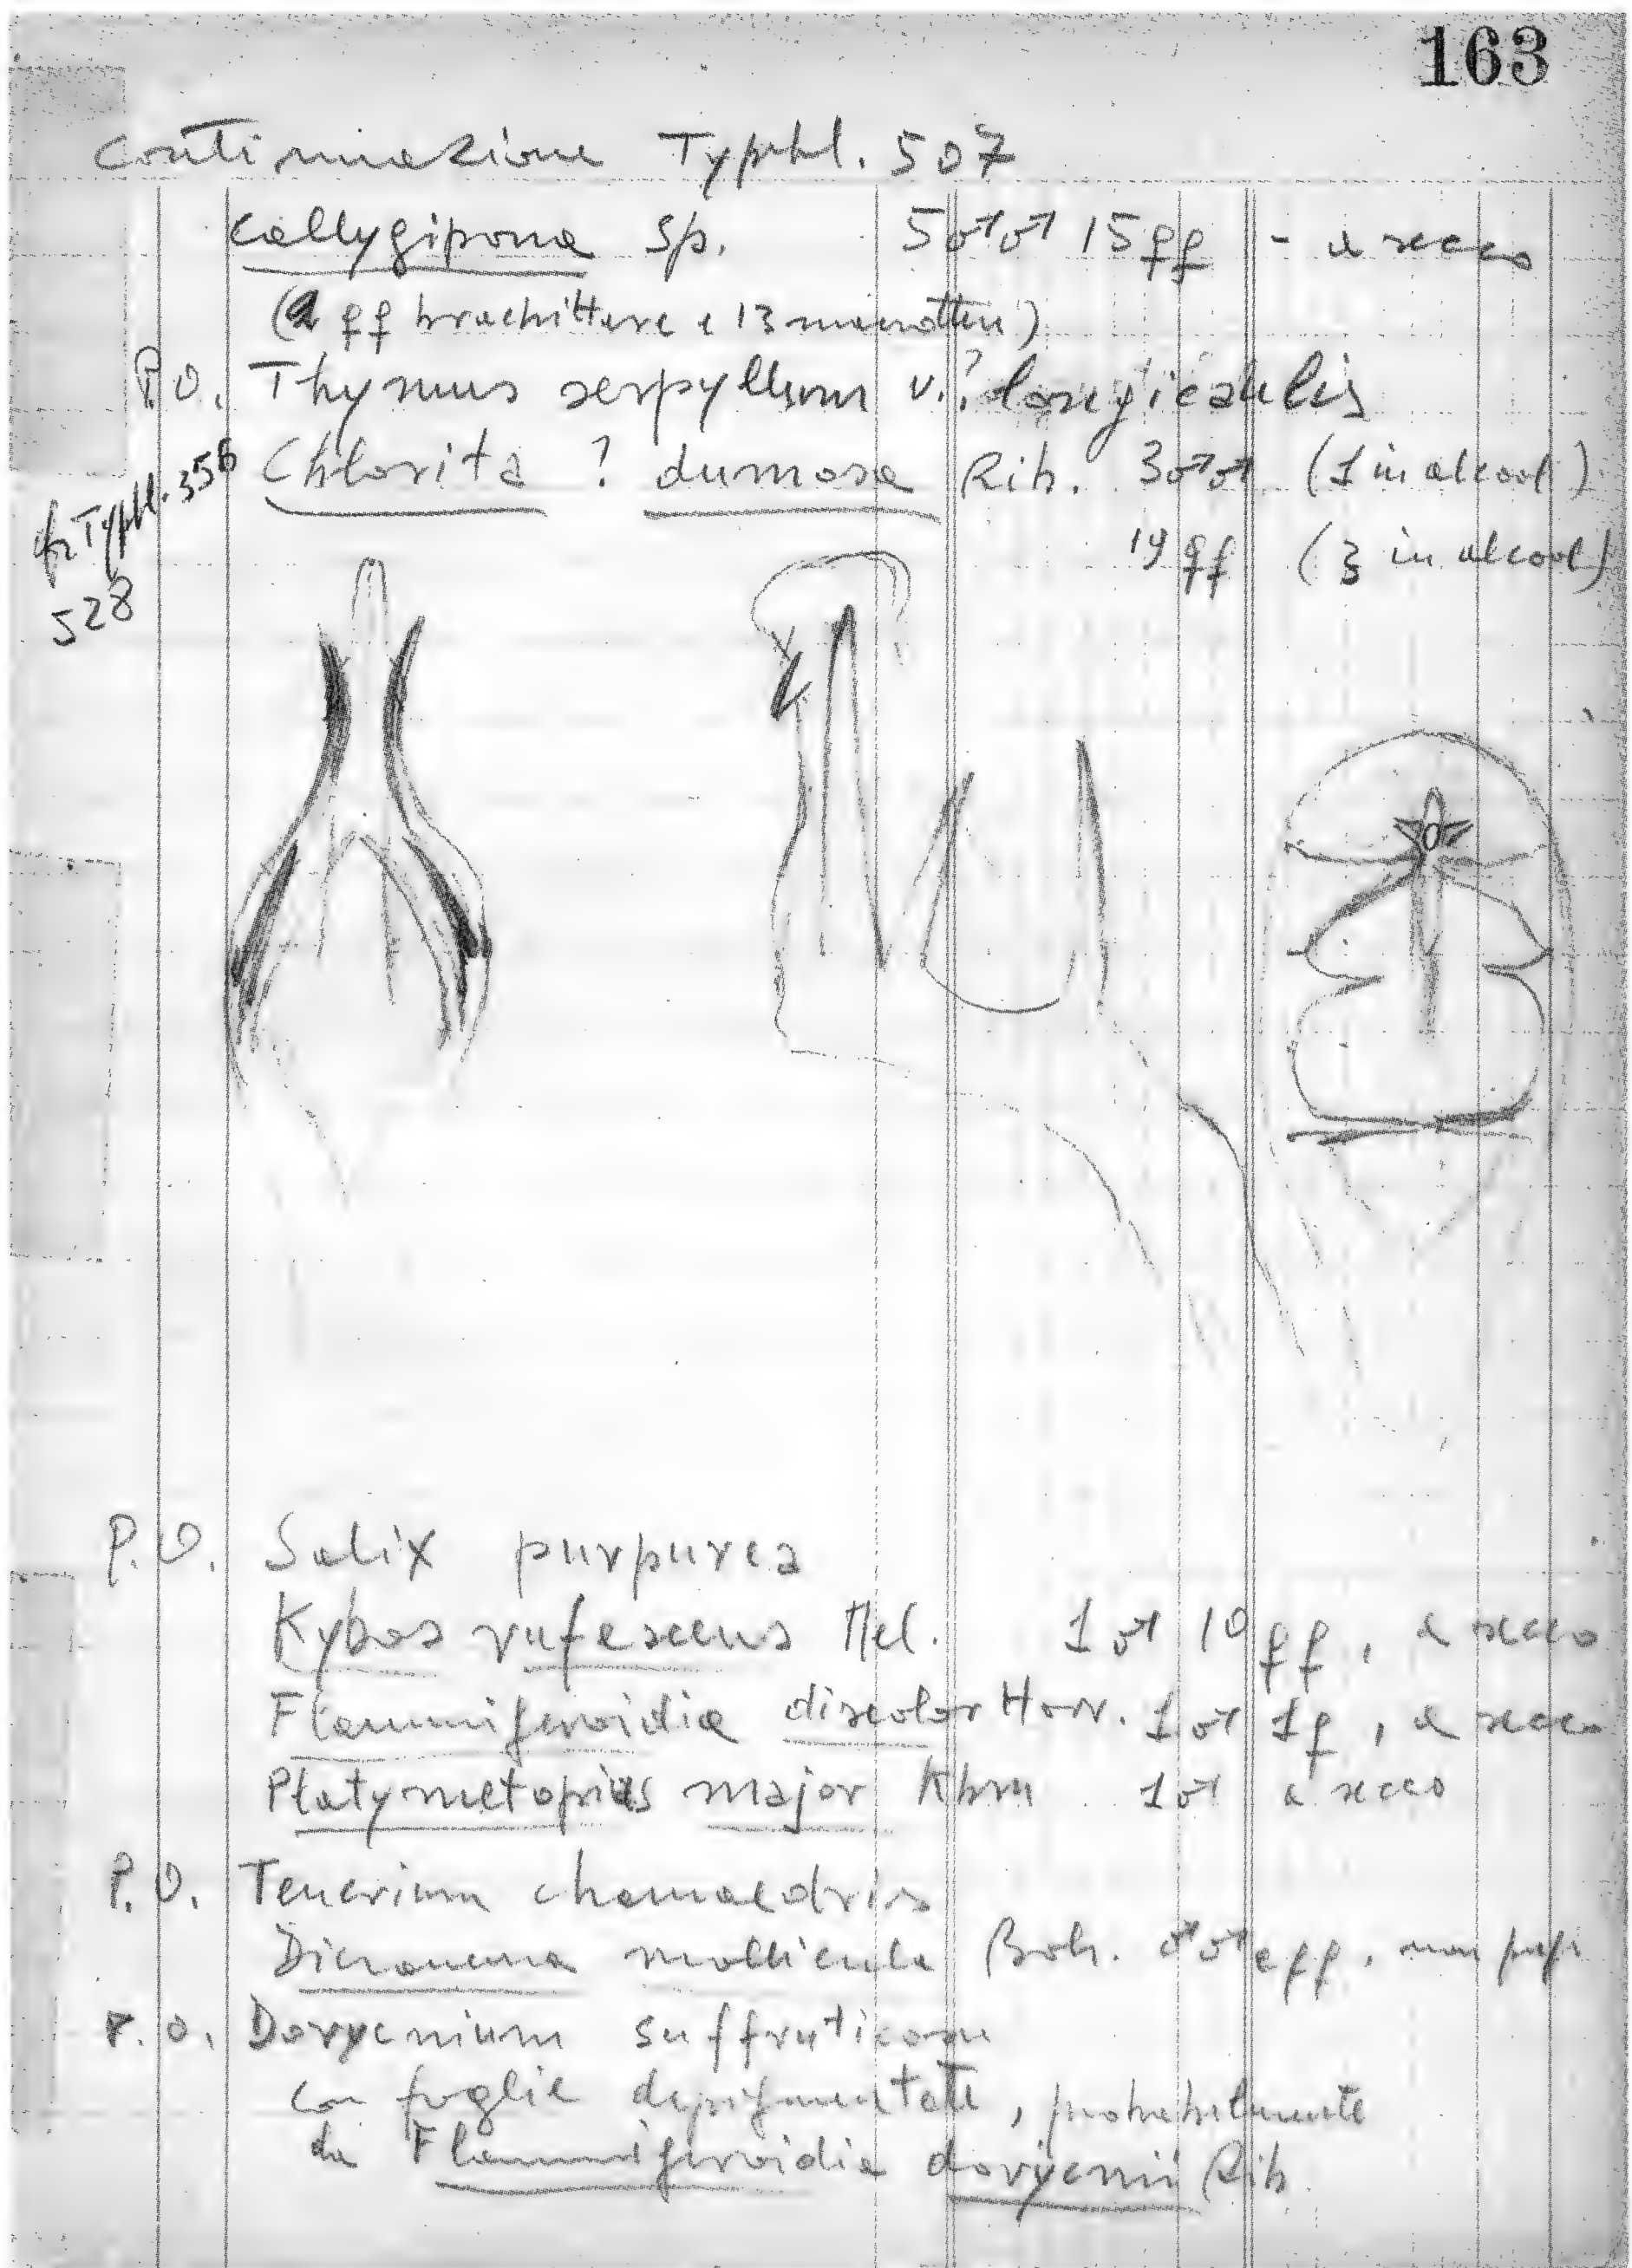 163
Continuazione Typhl. 507
Callygipona sp. 5♂♂ 15♀♀ - a secco
(2 ♀♀ brachittere e 13 macrottere)
P.O. Thymus serpyllum v.? longicaulis
Chlorita ? dumosa Rib. 3♂♂ (1 in alcool)
19 ♀♀ (3 in alcool)
Typhl. 356
528
P.O. Salix purpurea
Kybos rufescens Mel. 1♂ 10♀♀, a secco
Flammigeroidia discolor Horv. 1♂ 1♀, a secco
Platymetopius major Kbm 1♂ a secco
P.O. Teucrium chamaedris
Dicraneura mollicula Boh. ♂♂ e ♀♀, non
P.O. Dorycnium suffruticosum
con foglie depigmentate, probabilmente
da Flammigeroidia dorycnii Rib